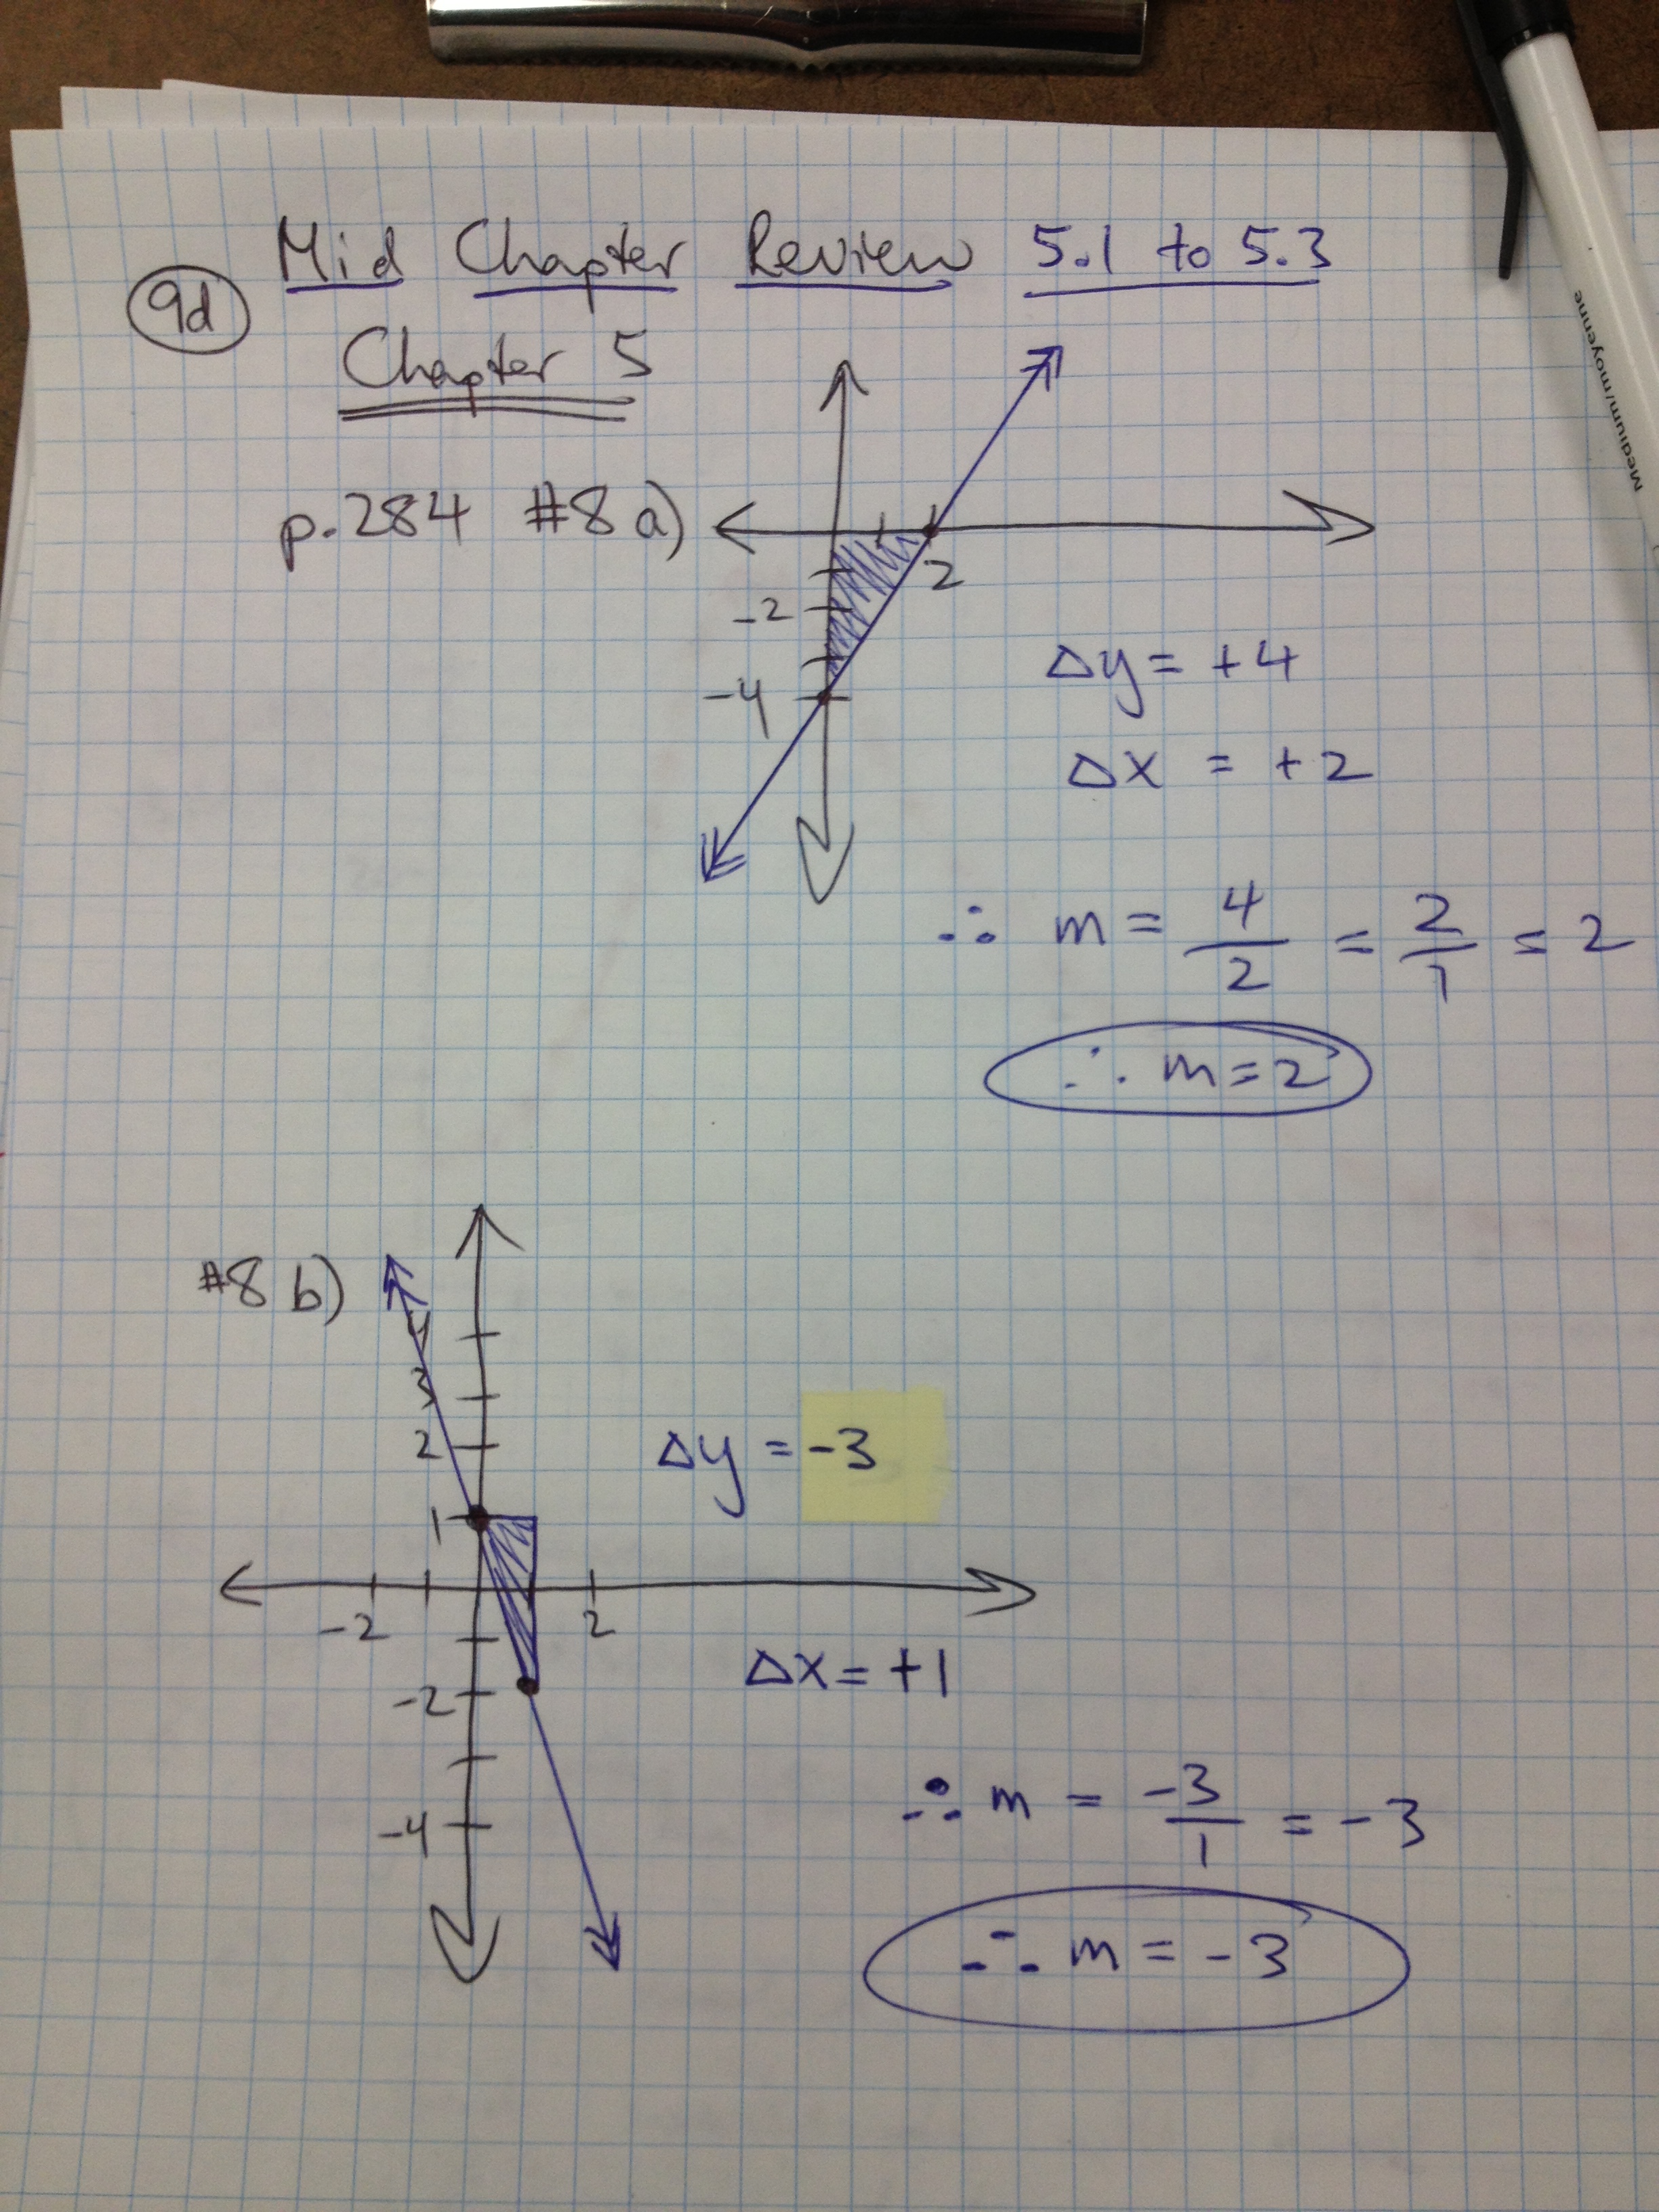 Mid Chapter Review 5.1 to 5.3
9d
Chapter 5
p.284 #8 a)
2
-2
-4
Δy = +4
Δx = +2
∴ m = 4/2 = 2/1 = 2
∴ m = 2
#8 b)
4
3
2
1
-2
2
-2
-4
Δy = -3
Δx = +1
∴ m = -3/1 = -3
∴ m = -3
Medium/moyenne